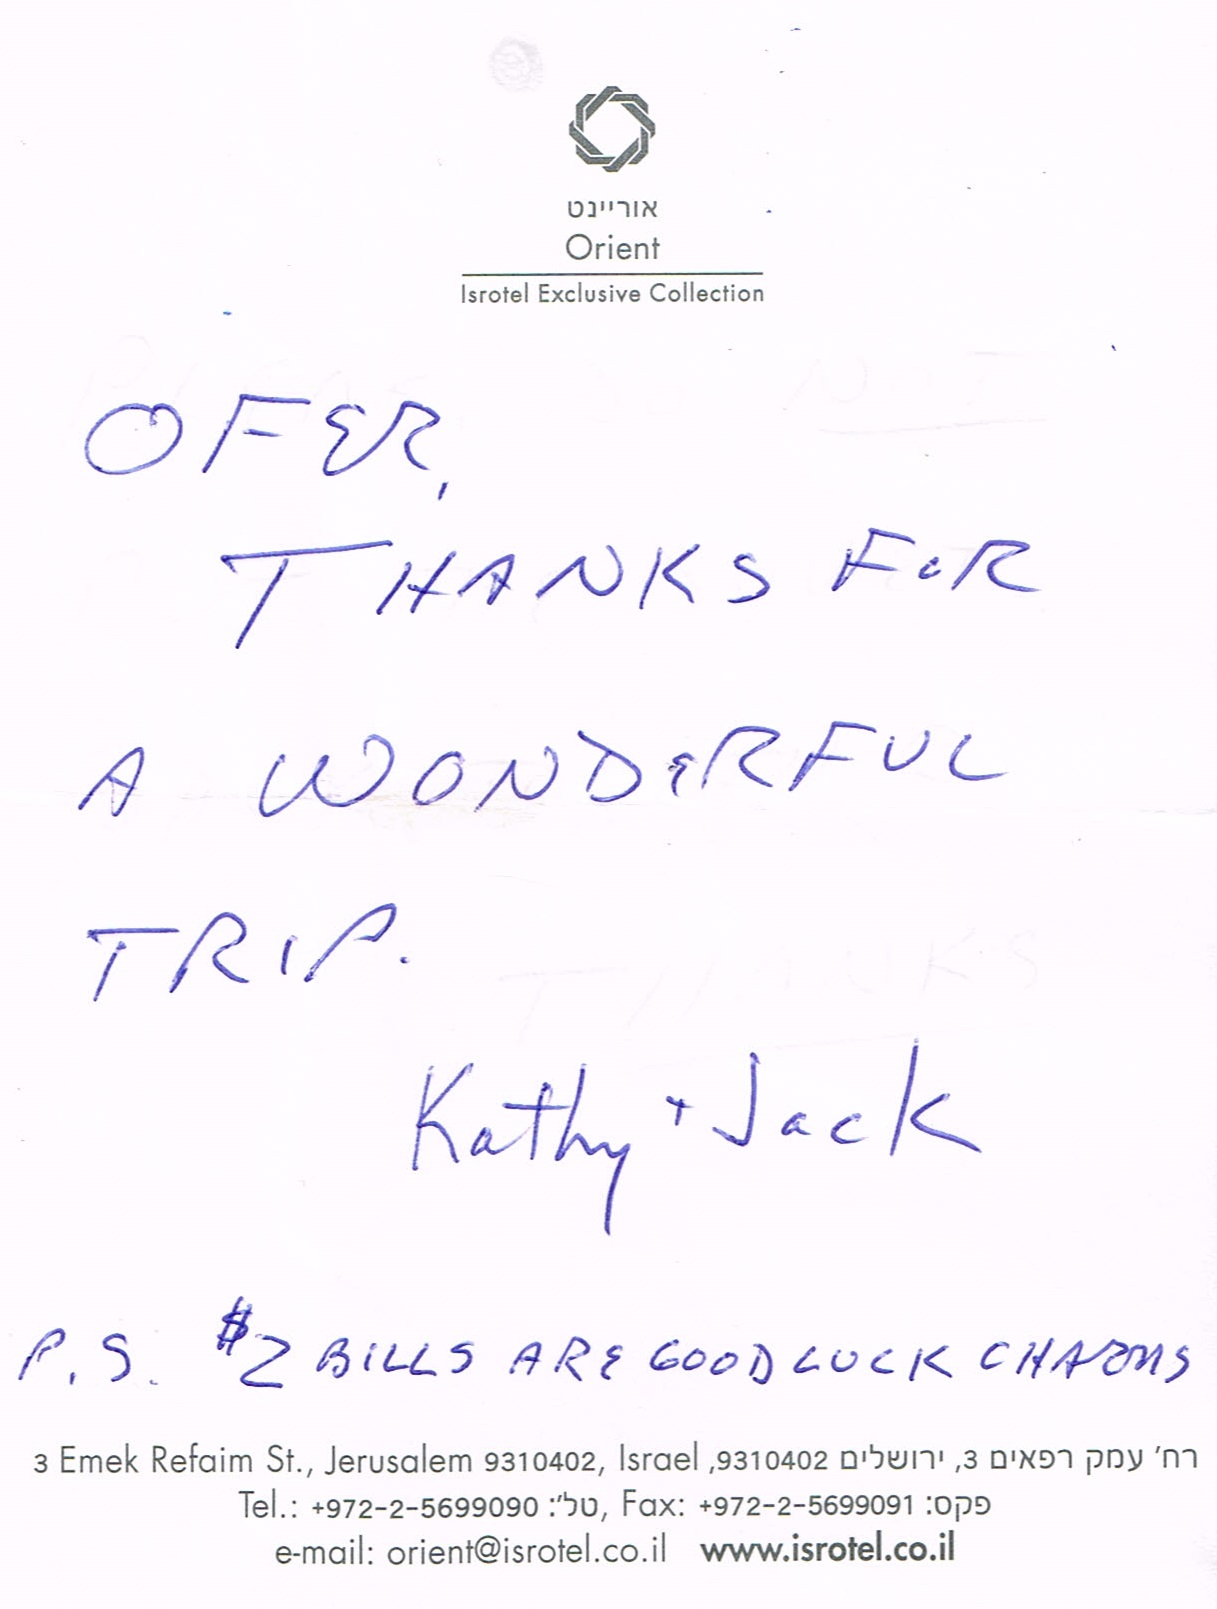 אוריינט
Orient
Isrotel Exclusive Collection
OFER,
THANKS FOR
A WONDERFUL
TRIP.
Kathy + Jack
P.S. $2 BILLS ARE GOOD LUCK CHARMS
3 Emek Refaim St., Jerusalem 9310402, Israel רח' עמק רפאים 3, ירושלים 9310402,
Tel.: +972-2-5699090 טל':, Fax: +972-2-5699091 פקס:
e-mail: orient@isrotel.co.il www.isrotel.co.il